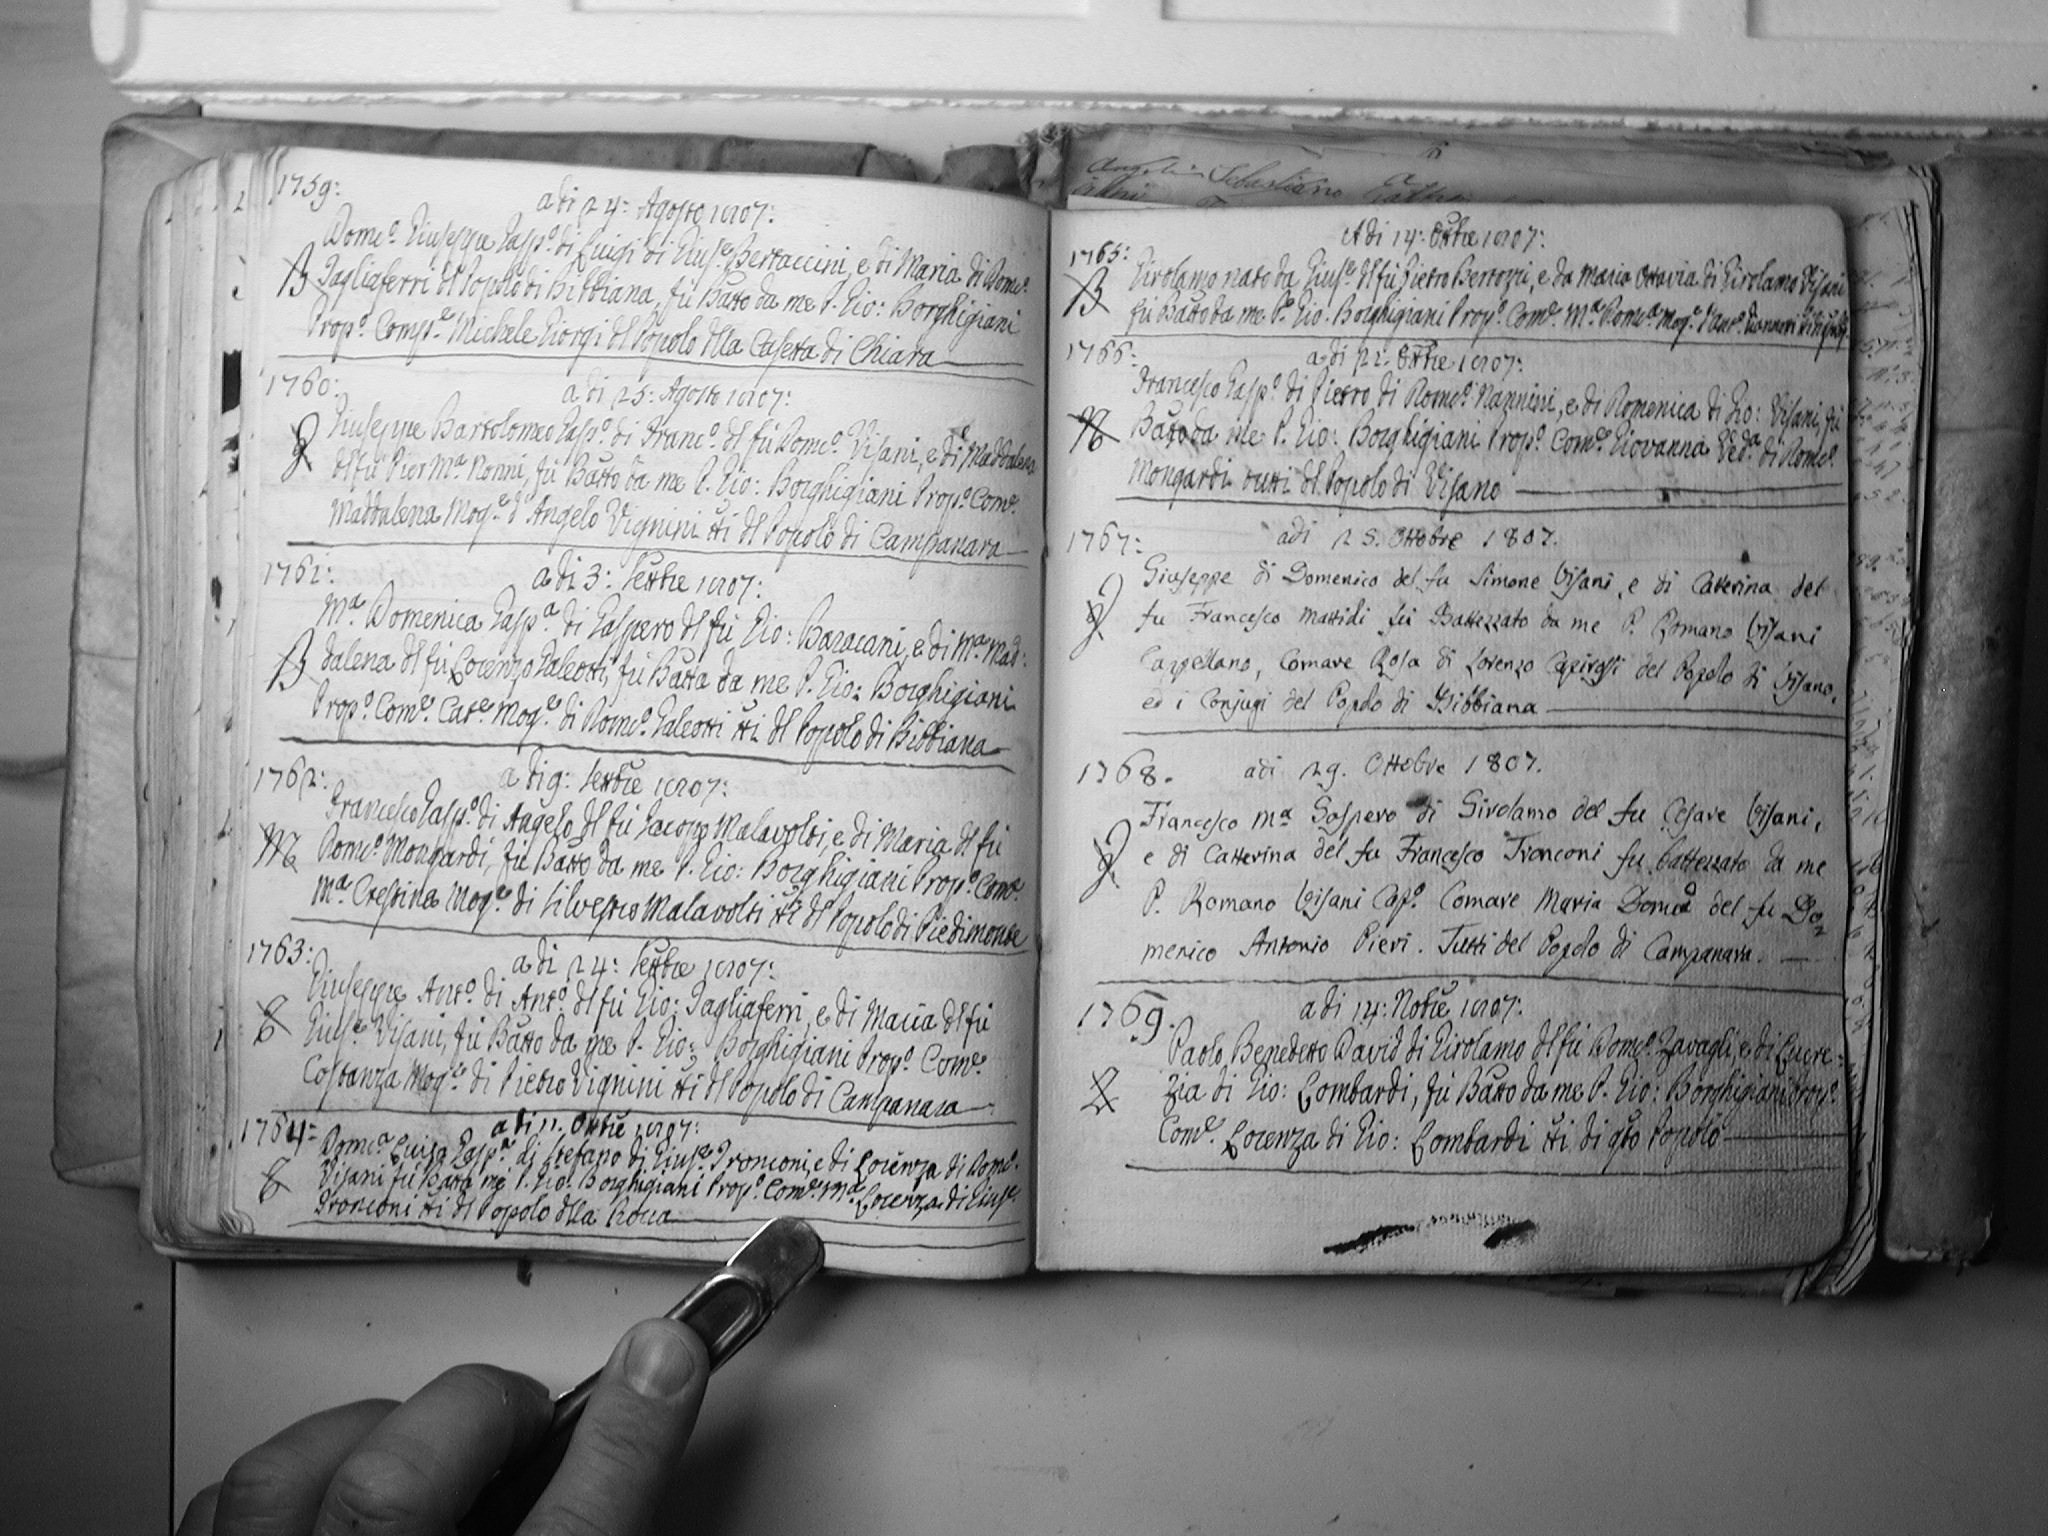 1759:
adi 24: Agosto 1807:
Domco. Giuseppe Gaspo. di Luigi di Giuse. Bertaccini, e di Maria di Domco.
B Tagliaferri dl Popolo di Bibbiana, fù Batto da me P. Gio: Borghigiani
Propo. Compe. Michele Giorgi dl Popolo dlla Casetta di Chiara
1760:
adi 25: Agosto 1807:
Giuseppe Bartolomeo Gaspo. di Franco. dl fù Domco. Visani, e di Maddalena
dl fù Pier Ma. Nonni, fù Batto da me P. Gio: Borghigiani Propo. Come.
Maddalena Moge. d'Angelo Vignini tti dl Popolo di Campanara
1761:
adi 3: Settbre 1807:
Ma. Domenica Gaspa. di Gaspero dl fù Gio: Baracani, e di Ma. Mad:
B dalena dl fù Lorenzo Galeotti, fù Batta da me P. Gio: Borghigiani
Propo. Come. Cate. Moge. di Domco. Galeotti tti dl Popolo di Bibbiana
1762:
adi 9: Settbre 1807:
Francesco Gaspo. di Angelo dl fù Jacopo Malavolti, e di Maria dl fù
M Domco. Mongardi, fù Batto da me P. Gio: Borghigiani Propo. Come.
Ma. Crestina Moge. di Silvestro Malavolti tti dl Popolo di Piedimonte
1763:
adi 24: Settbre 1807:
Giuseppe Anto. di Anto. dl fù Gio: Tagliaferri, e di Maria dl fù
Giuse. Visani, fù Batto da me P. Gio: Borghigiani Propo. Come.
Costanza Moge. di Pietro Vignini tti dl Popolo di Campanara
1764:
adi 11: Ottbre 1807:
Domca. Luisa Gaspa. di Stefano di Giuse. Tronconi, e di Lorenza di Domco.
Visani fù Batta me P. Gio: Borghigiani Propo. Come. Ma. Lorenza di Giuse.
Tronconi tti dl Popolo dlla Rocca
Angeli Sebastiano
Adi 14: Ottbre 1807:
1765:
Girolamo nato da Giuse. dl fù Pietro Bertozzi, e da Maria Ottavia di Girolamo Visani
B fù Batto da me P. Gio: Borghigiani Propo. Come. Ma. Domca. Moge.
1766:
adi 22: Ottbre 1807:
Francesco Gaspo. di Pietro di Domco. Nannini, e di Domenica di Gio: Visani, fù
N Batto da me P. Gio: Borghigiani Propo. Come. Giovanna Veda. di Domco.
Mongardi tutti dl Popolo di Visano
1767: adi 25. Ottobre 1807.
Giuseppe di Domenico del fu Simone Visani, e di Catterina del
fu Francesco Mattidi fù Battezzato da me P. Romano Visani
Cappellano, Comare Rosa di Lorenzo Capirossi del Popolo di Visano,
ed i Conjugi del Popolo di Bibbiana
1768. adi 29. Ottobre 1807.
Francesco Ma. Gaspero di Girolamo del fu Cesare Visani,
e di Catterina del fu Francesco Tronconi fu battezzato da me
P. Romano Visani Capo. Comare Maria Domca. del fu Do=
menico Antonio Pieri. Tutti del Popolo di Campanara.
1769.
adi 14: Nobre 1807:
Paolo, Benedetto David di Girolamo dl fù Domco. Zavagli, e di Lucre=
Z zia di Gio: Lombardi, fù Batto da me P. Gio: Borghigiani Propo.
Come. Lorenza di Gio: Lombardi tti di qto Popolo